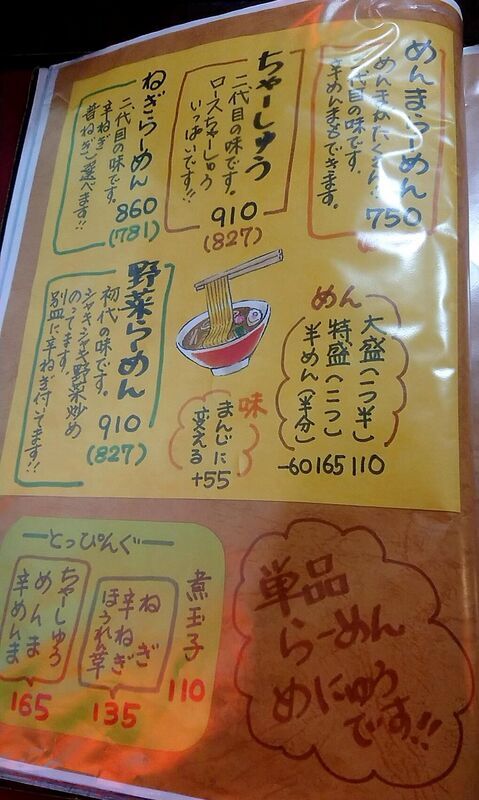 めんまらーめん
めんまがたくさん!!
二代目の味です。
辛めんまもできます。
750
ちゃーしゅう
二代目の味です。
ロースちゃーしゅう
いっぱいです!!
910
(827)
ねぎらーめん
二代目の味です。
辛ねぎ
普ねぎ選べます!!
860
(781)
めん
大盛(一つ半)
110
特盛(二つ)
165
半めん(半分)
-60
味
まんじに
変える
+55
野菜らーめん
初代の味です。
シャキシャキ野菜炒め
のってます。
別皿に辛ねぎ付いてます!!
910
(827)
とっぴんぐ
煮玉子
110
ねぎ
辛ねぎ
ほうれん草
135
ちゃーしゅう
めんま
辛めんま
165
単品
らーめん
めにゅう
です!!